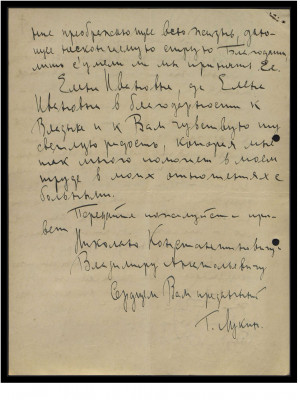 ние преображающее всю жизнь, даю-
щее нескончаемую струю Благодати,
лишь сумели ли мы принять Ее.
Елена Ивановна, да Елена
Ивановна в благодарности к
Владыке и к Вам чувствую ту
светлую радость, которая мне
так много помогает в моем
труде в моих отношениях с
больными.
Передайте пожалуйста при-
вет
Николаю Константиновичу
Владимиру Анатольевичу
Сердцем Вам преданный
Г. Лукин.